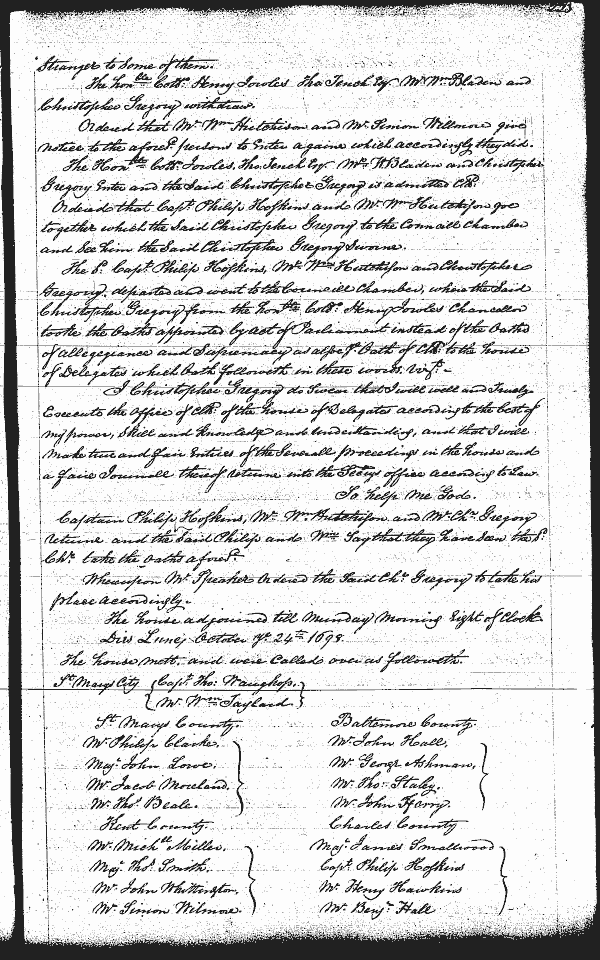 Stranger to Some of them.
The Honble Collo. Henry Jowles Tho: Tench Esqr Mr Wm Bladen and
Christopher Gregory withdrew.
Ordered that Mr Wm Hutchison and Mr Simon Willmore give
notice to the aforesd. persons to Enter againe which accordingly they did.
The Honble Collo. Jowles, Tho: Tench Esqr Mr Wm Bladen and Christopher
Gregory Enter and the Said Christopher Gregory is admitted Clk.
Ordered that Capt. Philip Hoskins and Mr Wm Hutchison goe
together with the Said Christopher Gregory to the Councill Chamber
and See him the Said Christopher Gregory Sworne.
The Sd. Capt. Philip Hoskins, Mr Wm Hutchison and Christopher
Gregory, departed and went to the Councill Chamber, where the Said
Christopher Gregory from the Honble Collo. Henry Jowles Chancellor
tooke the Oaths appointed by act of Parliament instead of the Oaths
of allegegiance and Supremacy as alsoe ye Oath of Clk. to the house
of Delegates which Oath followeth in these words. Vizt. -
I Christopher Gregory do Swear that I will well and Truely
Execute the Office of Clk. of the house of Delegates according to the best of
my power, Skill and Knowledge and Understanding, and that I will
make true and fair Entries of the Severall proceedings in the house and
a faire Journall thereof returne into the Secrys office according to Law.
So help me God.
Captain Philip Hoskins, Mr Wm Hutchison and Mr Chr. Gregory
returne and the Said Philip and Wm Say that they have Seen the Sd.
Chr. take the Oaths aforesd.
Whereupon Mr Speaker Ordered the Said Chr. Gregory to take his
place accordingly.
The house adjourned till Munday Morning Eight of Clock
Dies Lunej October ye 24th 1698
The house mett, and were Called over as followeth.
St Marys City { Capt. Tho: Waughop. }
Mr Wm Taylard.
St Marys County.
Mr Philip Clarke.
Maj. John Lowe.
Mr Jacob Moreland.
Mr Tho. Beale.
Kent County.
Mr Michll Miller.
Maj. Tho. Smith.
Mr John Whittington.
Mr Simon Wilmore.
Baltemore County.
Mr John Hall.
Mr George Ashman.
Mr Tho. Staley.
Mr John Fferry.
Charles County
Maj. James Smallwood
Capt. Philip Hoskins
Mr Henry Hawkins
Mr Benjn. Hall